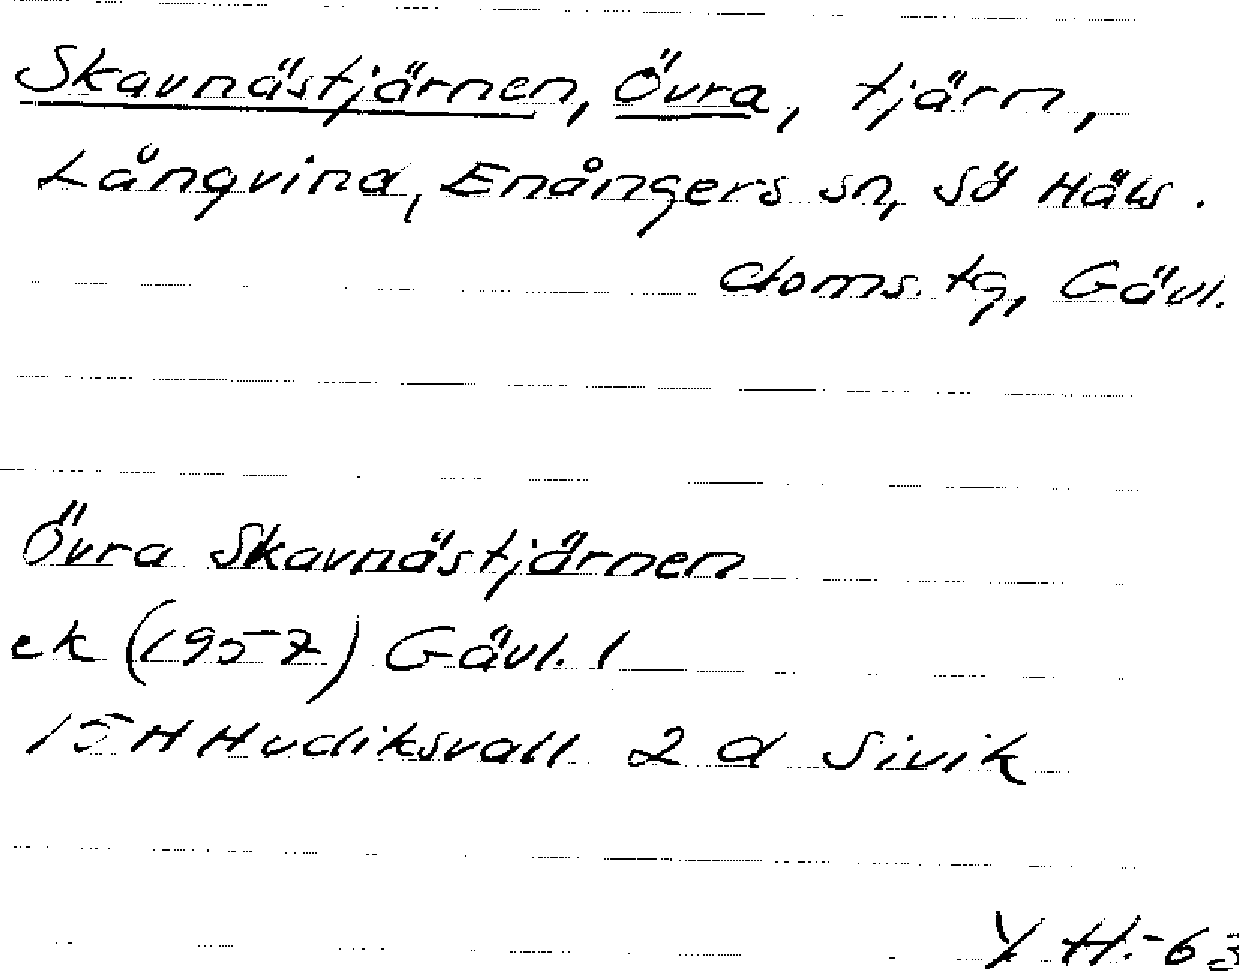 Skavnästjärnen, Övra, tjärn,
Långvind, Enångers sn, Sö Häls.
doms. tg, Gävl.
Övra Skavnästjärnen
ek (1957) Gävl. l
15H Hudiksvall 2 d Sivik
Y. H.-63